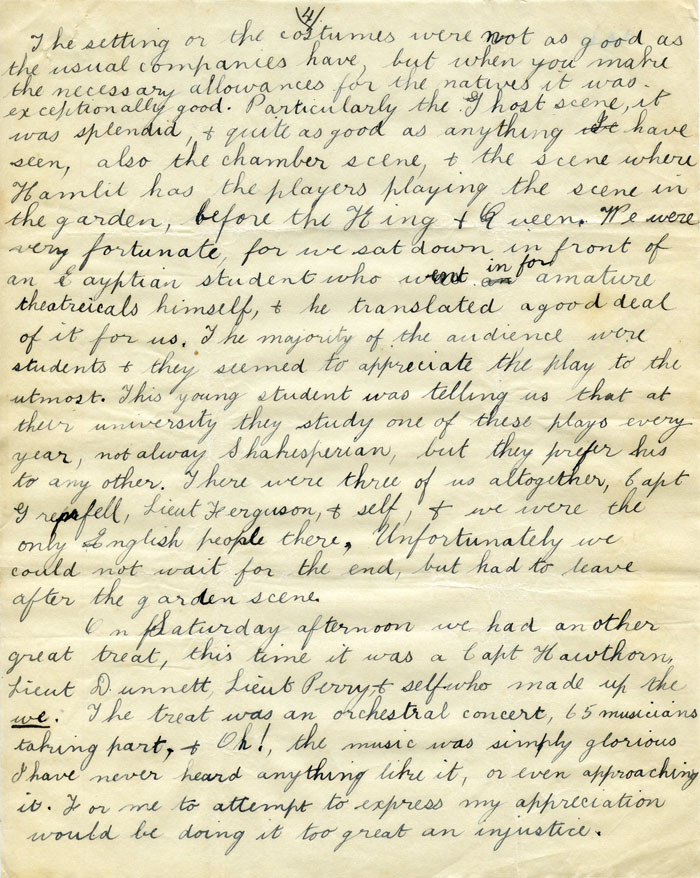 4
The setting or the costumes were not as good as
the usual companies have, but when you make
the necessary allowances for the natives it was
exceptionally good. Particularly the Ghost scene, it
was splendid, & quite as good as anything I have
seen, also the chamber scene, & the scene where
Hamlit has the players playing the scene in
the garden, before the King & Queen. We were
very fortunate, for we sat down in front of
an Eayptian student who went in for amature
theatreicals himself, & he translated a good deal
of it for us. The majority of the audience were
students & they seemed to appreciate the play to the
utmost. This young student was telling us that at
their university they study one of these plays every
year, not alway Shakesperian, but they prefer his
to any other. There were three of us altogether, Capt
Grenfell, Lieut Ferguson, & self, & we were the
only English people there, Unfortunately we
could not wait for the end, but had to leave
after the garden scene.
On Saturday afternoon we had another
great treat, this time it was a Capt Hawthorn,
Lieut Dunnett, Lieut Perry & self who made up the
we. The treat was an orchestral concert, 65 musicians
taking part, & Oh!, the music was simply glorious
I have never heard anything like it, or even approaching
it. For me to attempt to express my appreciation
would be doing it too great an injustice.